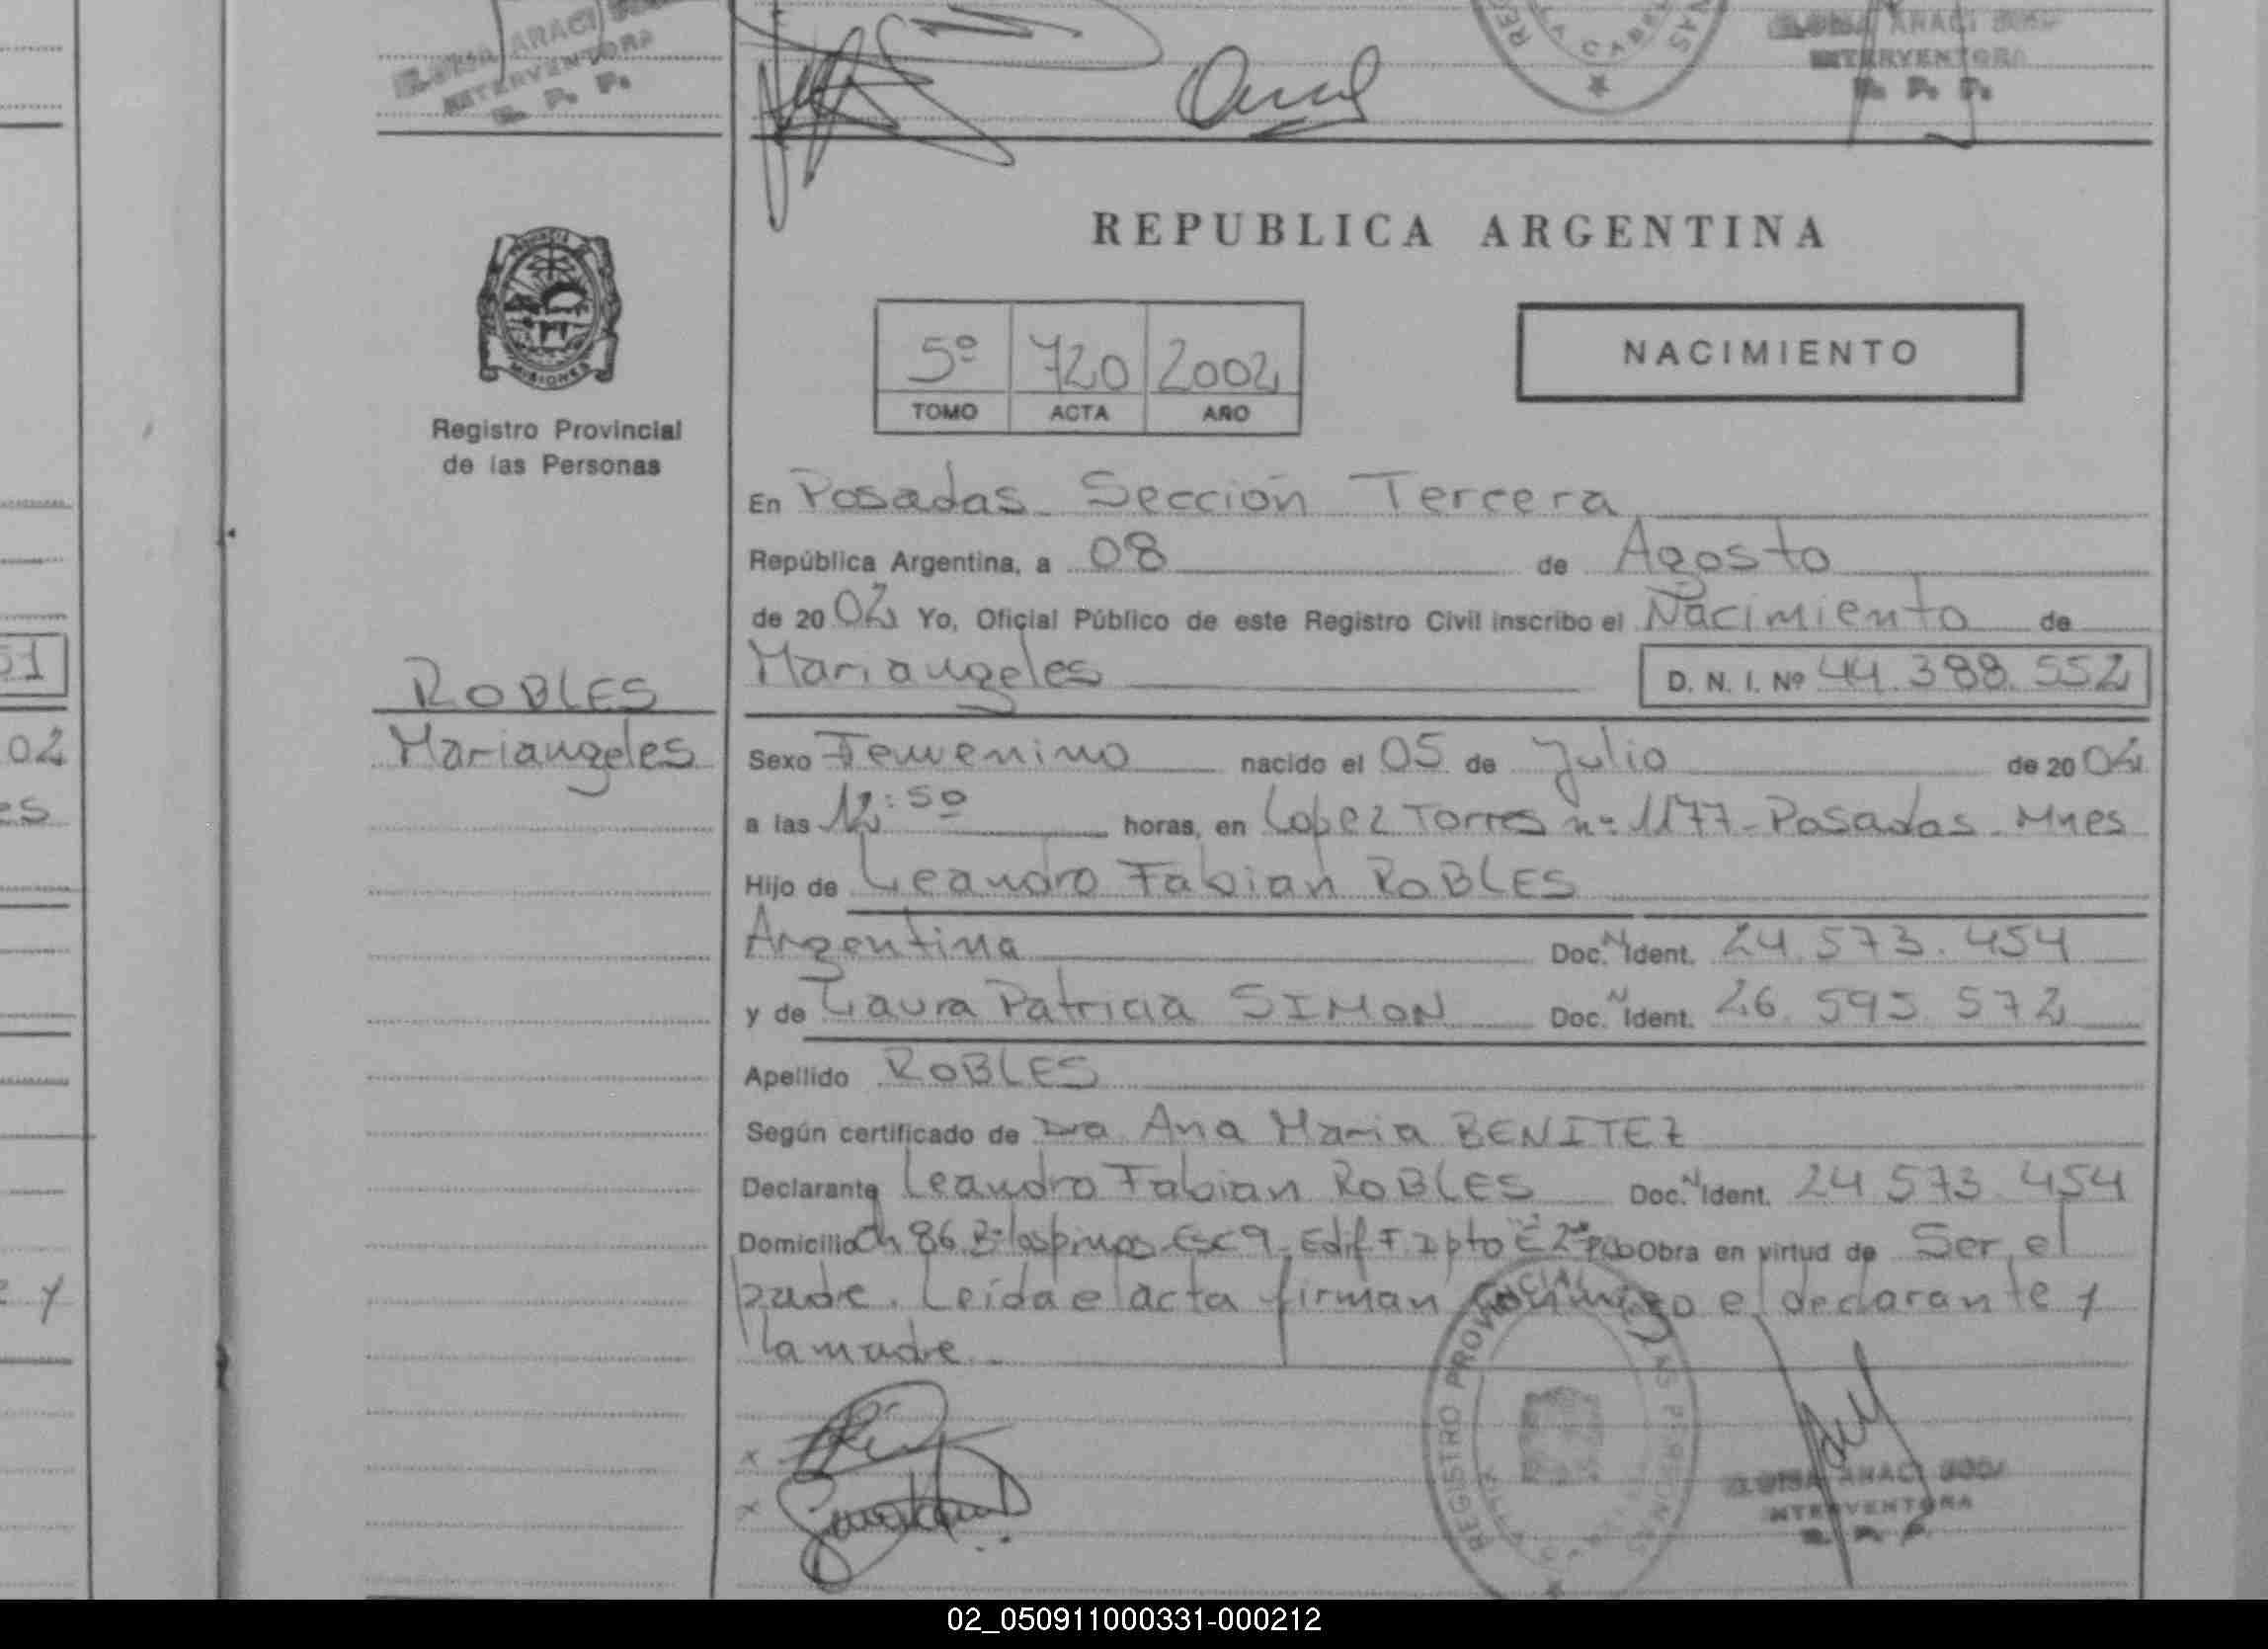 ARACI
INTERVENTORA
R. P. P.
ARACI
INTERVENTORA
R. P. P.
REPUBLICA ARGENTINA
MISIONES
Registro Provincial
de las Personas
5º 720 2002
TOMO ACTA AÑO
NACIMIENTO
En Posadas Sección Tercera
República Argentina, a 08 de Agosto
de 2002 Yo, Oficial Público de este Registro Civil inscribo el Nacimiento de
Mariangeles D. N. I. Nº 44.388.552
ROBLES
Mariangeles
Sexo Femenino nacido el 05 de Julio de 2002
a las 12:50 horas, en Lopez Torres nº 1177-Posadas-Mnes
Hijo de Leandro Fabian ROBLES
Argentina Doc. N Ident. 24.573.454
y de Laura Patricia SIMON Doc. N Ident. 26.595.572
Apellido ROBLES
Según certificado de Dra Ana Maria BENITEZ
Declarante Leandro Fabian ROBLES Doc. N Ident. 24 573 454
Domicilio Ch 86 Bº los pinos Esc 9 Edif F Dpto E 2º Obra en virtud de Ser el
padre. Leida el acta firman conmigo el declarante y
la madre
REGISTRO PROVINCIAL
ARACI
INTERVENTORA
02_050911000331-000212